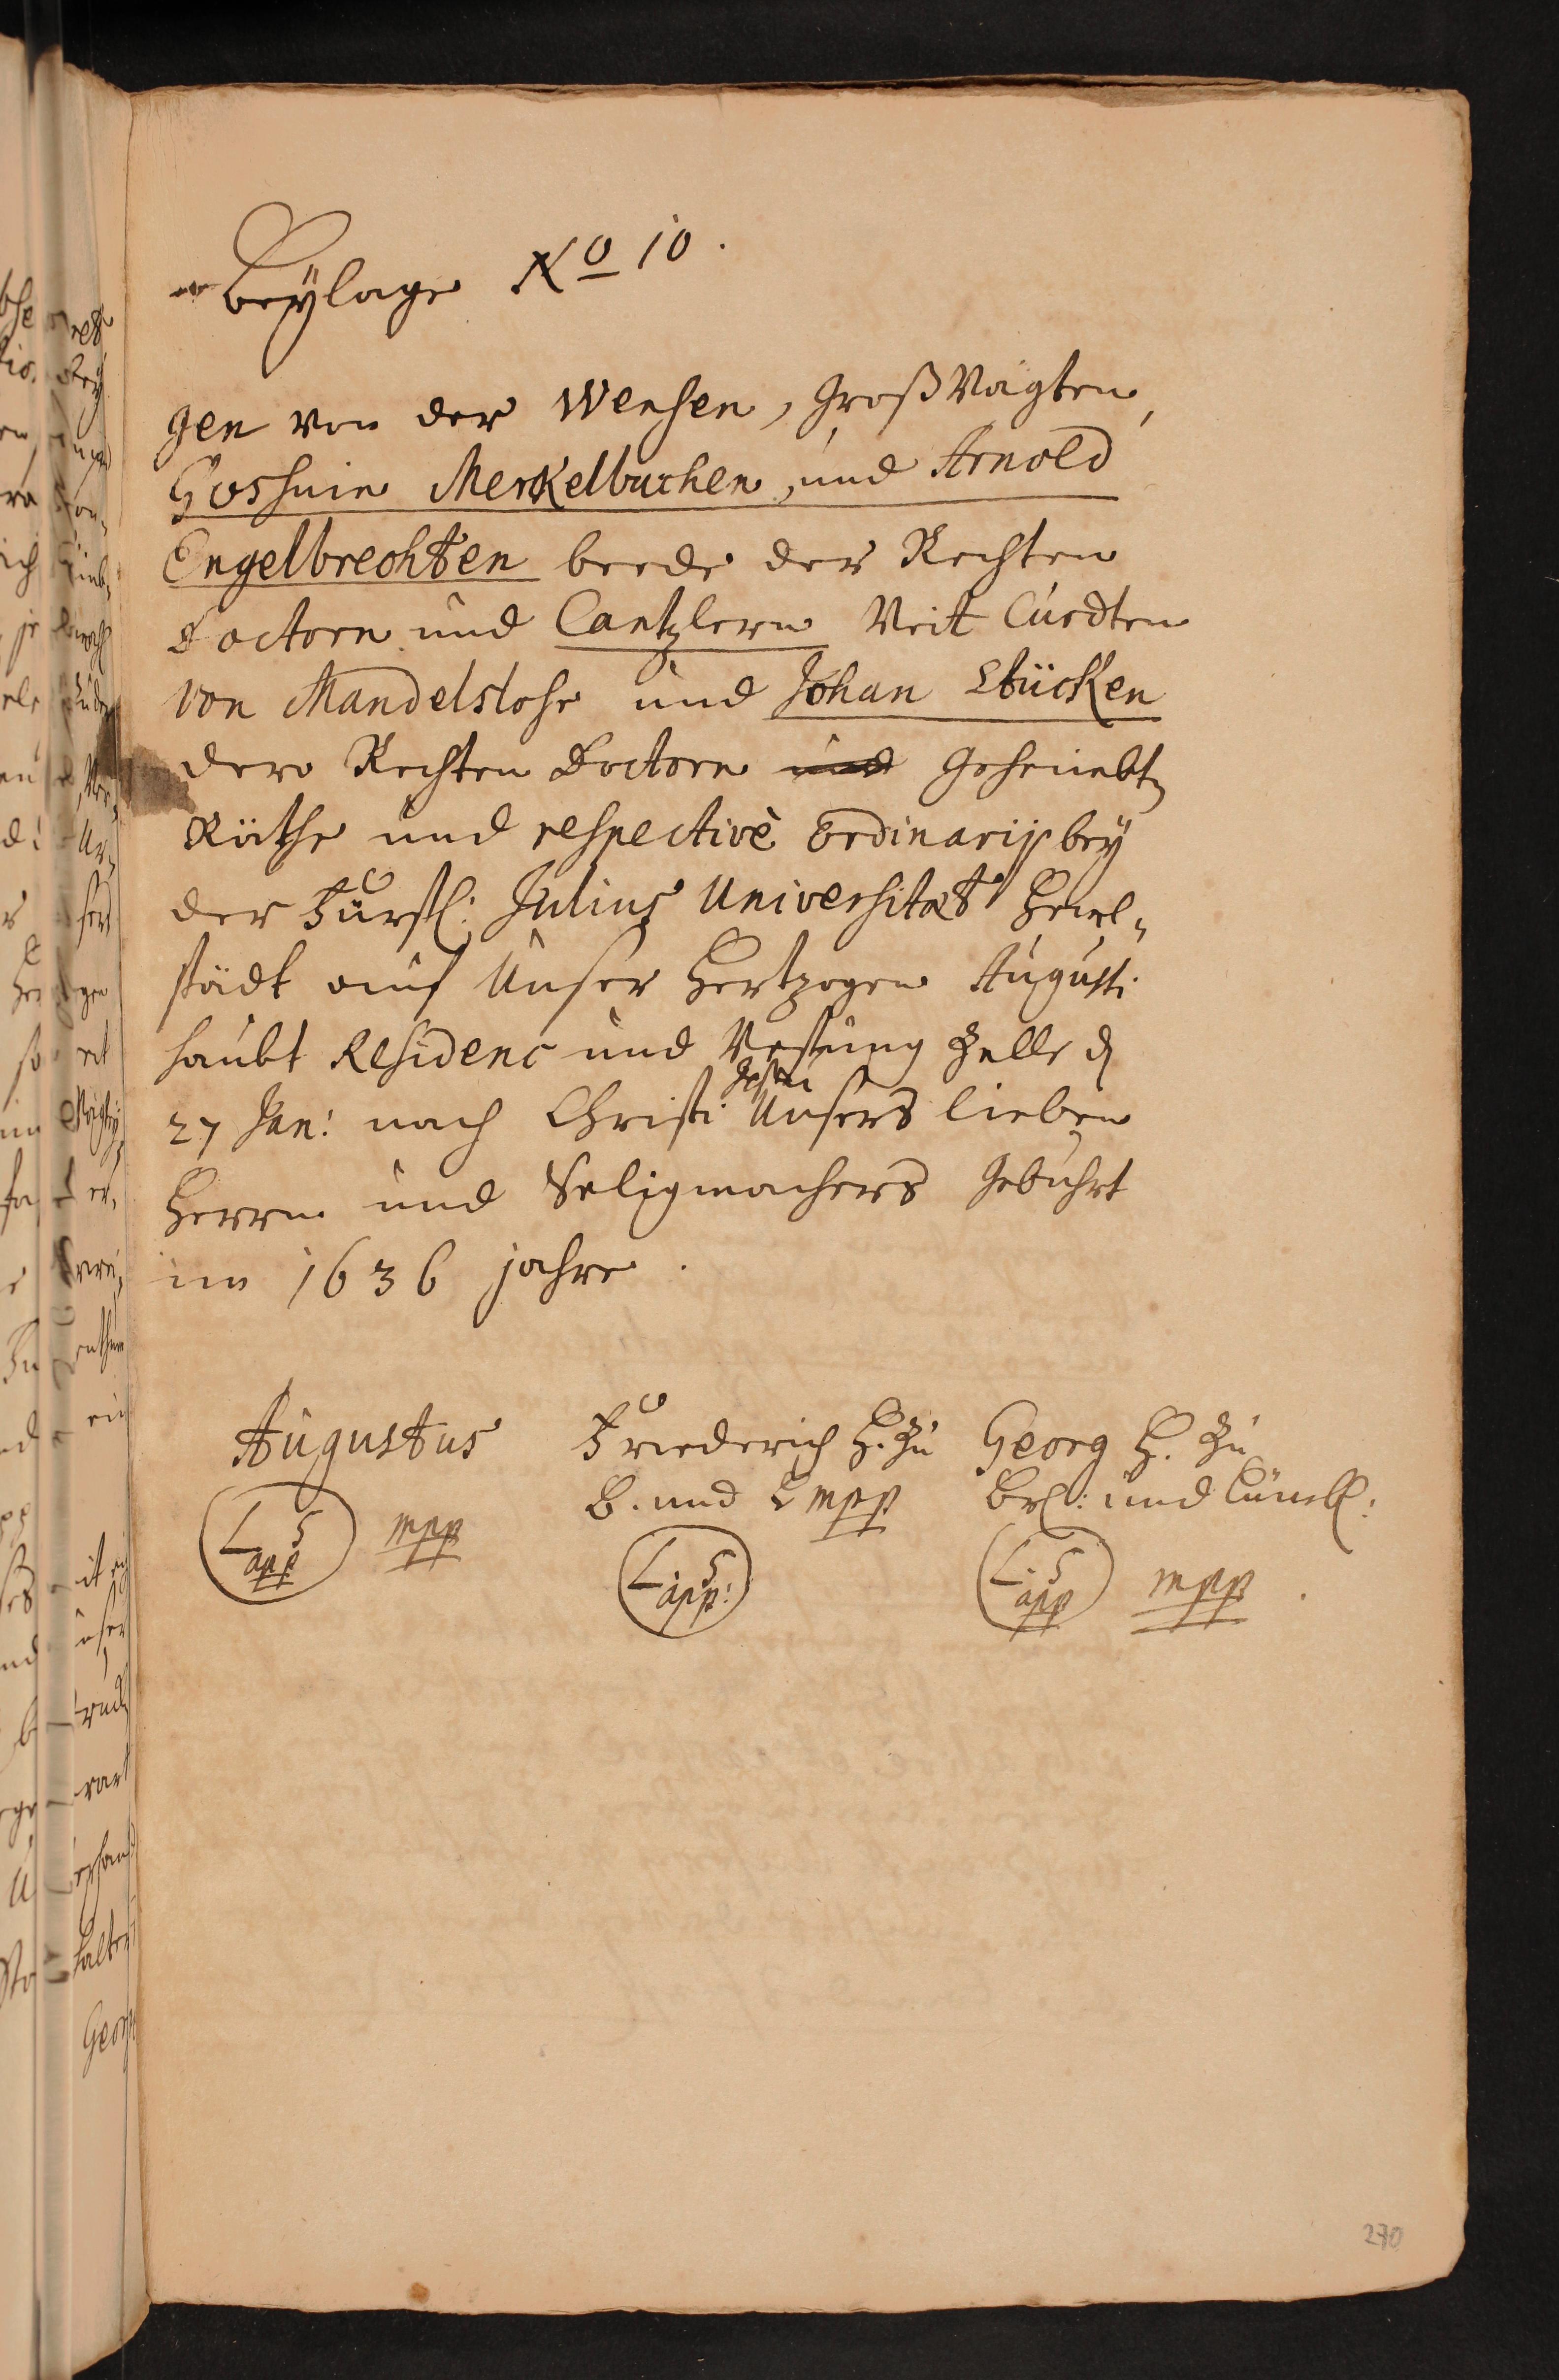 Beylage No 10.
gen von der Wensen, Großvögten,
Goswin Merkelbachen, und Arnold
Engelbrechten beede der Rechten
Doctorn und Cantzlern Veit Curdten
von Mandelslohe und Johan Stücken
dero Rechten Doctorn und geheimbt
Räthe und respectivè ordinarij bey
der Fürstl: Julius Universitæt Helm-
städt auf Unser Hertzogen Augusti
haubt Residenc und Vestung Zelle d
27 Jan: nach Christi Unsers lieben
Herrn und Seligmachers gebuhrt
im 1636 jahre.
Augustus Friederich H. zu Georg H. zu
B. und L mpp Br: und Lüneb:
L S app mpp L. S app: L. S app mpp
270